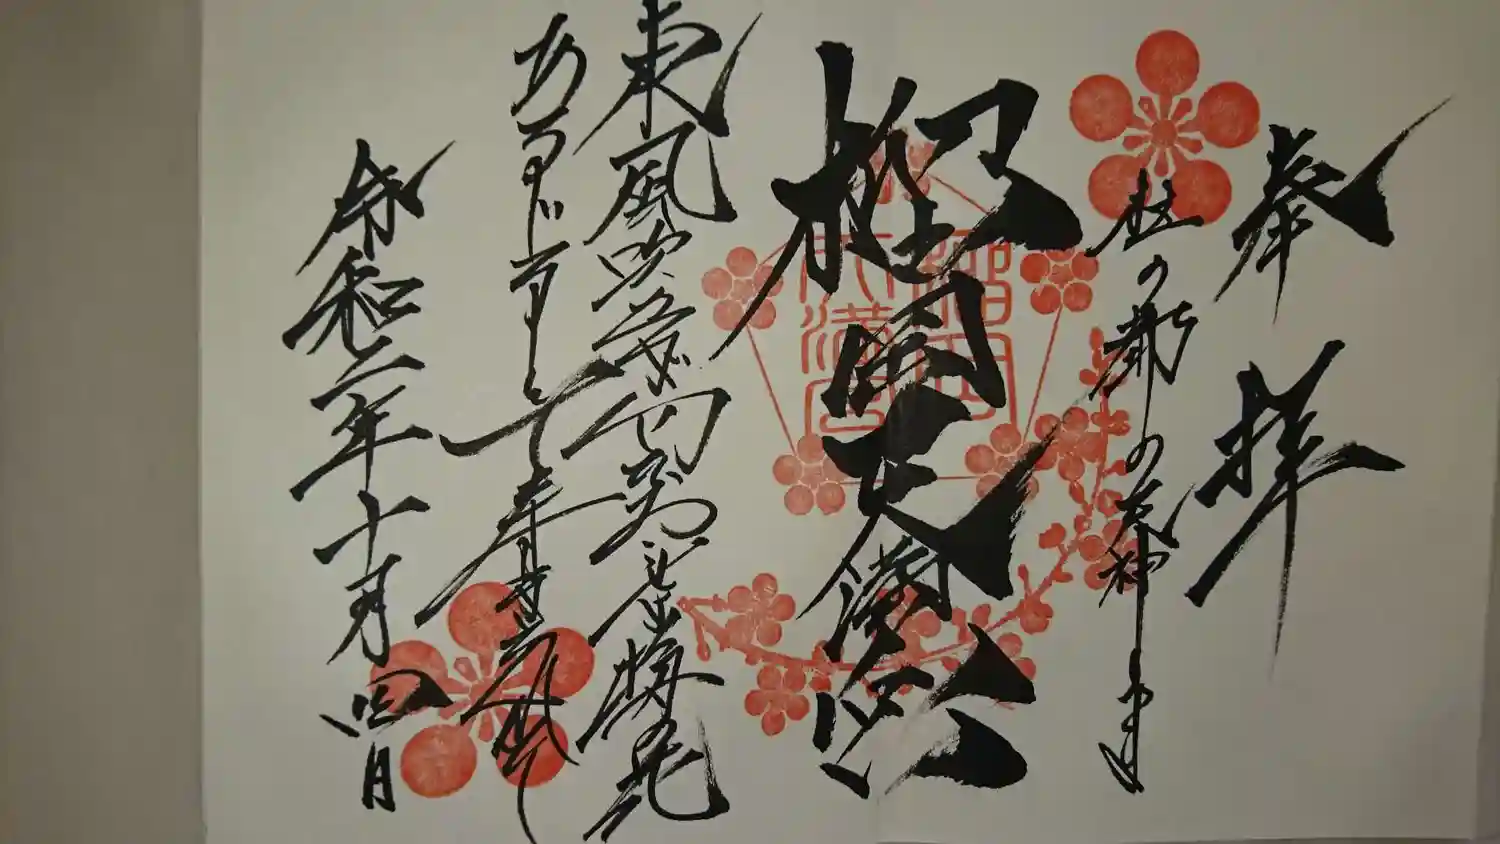 奉拝
杜の都の天神さま
榴岡天満宮
榴岡
天満宮
東風吹かば匂ひおこせよ梅の花
あるじなしとて春
令和二年十月四日